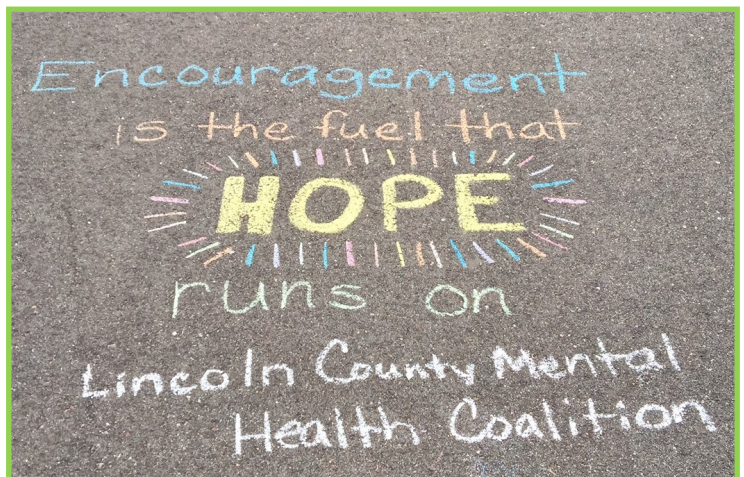 Encouragement
is the fuel that
HOPE
runs on
Lincoln County Mental
Health Coalition